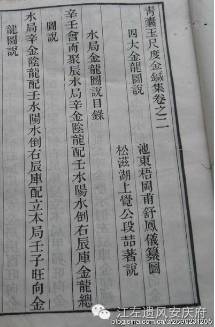 青囊玉尺度金鍼集卷之二
池東梧岡甫舒鳳儀纂圖
四大金龍圖說
松滋湖上覺公段喆著說
水局金龍圖說目錄
辛壬會而聚辰水局辛金陰龍配壬水陽水倒右辰庫金龍總
圖說
水局辛金陰龍配壬水陽水倒右辰庫配立本局壬子旺向金
龍圖說
江左遗风安庆府